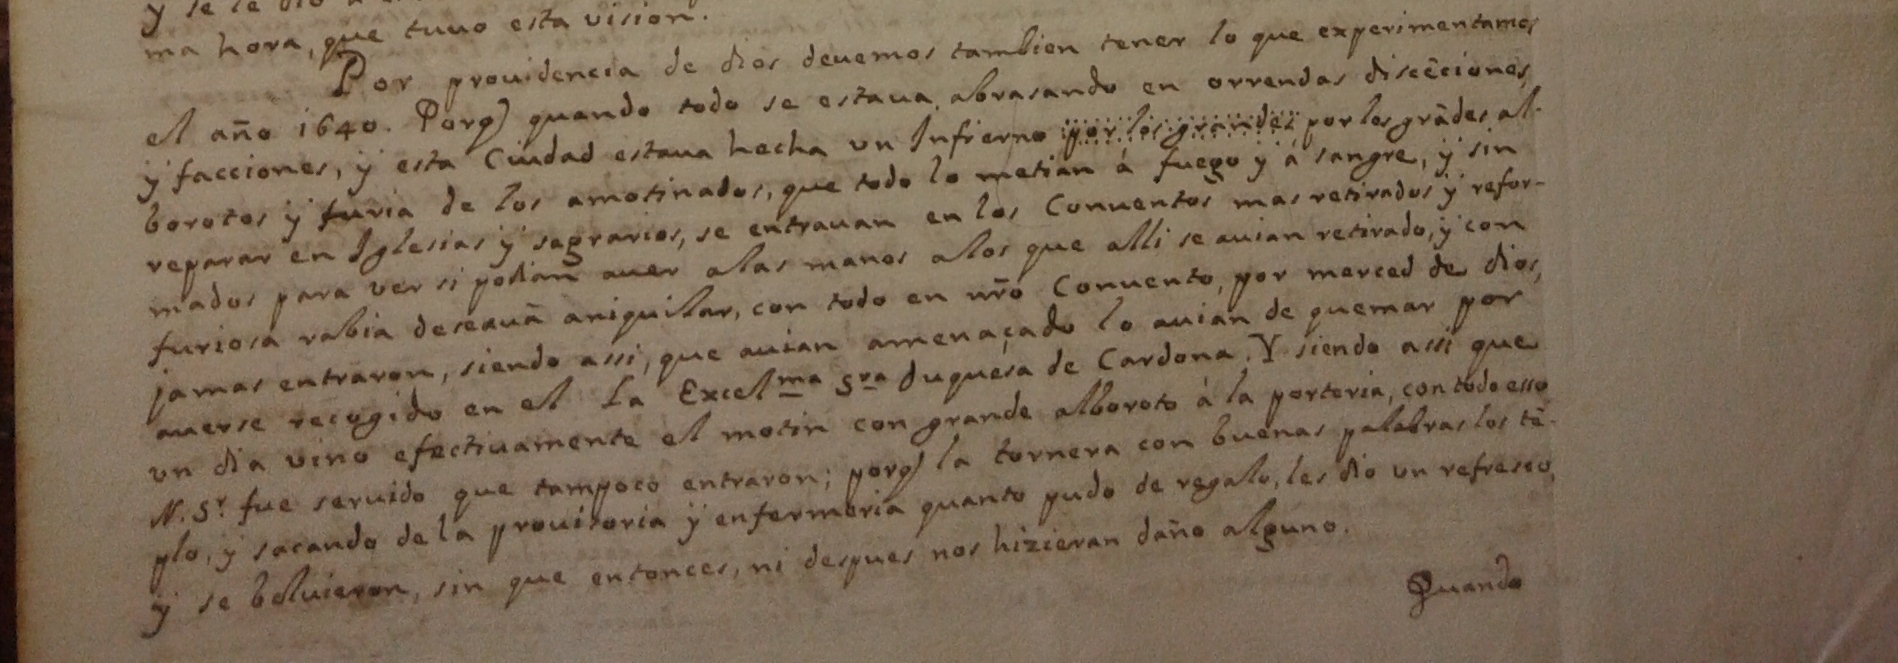 y se le dio
ma hora, que tuuo esta vision.
Por prouidencia de dios deuemos tambien tener lo que experimentamos
el año 1640. Porq) quando todo se estaua abrasando en orrendas disceciones,
y facciones, y esta Ciudad estaua hecha un Infierno por los grandes, por los grãdes al-
borotos y furia de los amotinados, que todo lo metian á fuego y á sangre, y sin
reparar en Iglesias y sagrarios, se entrauan en los Conuentos mas retirados y refor-
mados para ver si podian auer a las manos a los que alli se auian retirado, y con
furiosa rabia deseauã aniquilar, con todo en nr̃o Conuento, por merced de dios,
jamas entraron, siendo assi, que auian amenaçado lo auian de quemar por
auerse recogido en el La Excelma Sra duquesa de Cardona. Y siendo assi que
vn dia vino efectiuamente el motin con grande alboroto á la porteria, con todo esso
N. Sr. fue seruido que tampoco entraron; porq) la tornera con buenas palabras los tẽ-
plo, y sacando de la prouisoria y enfermeria quanto pudo de regalo, les dio un refresco,
y se boluieron, sin que entonces, ni despues nos hizieran daño alguno.
Quando